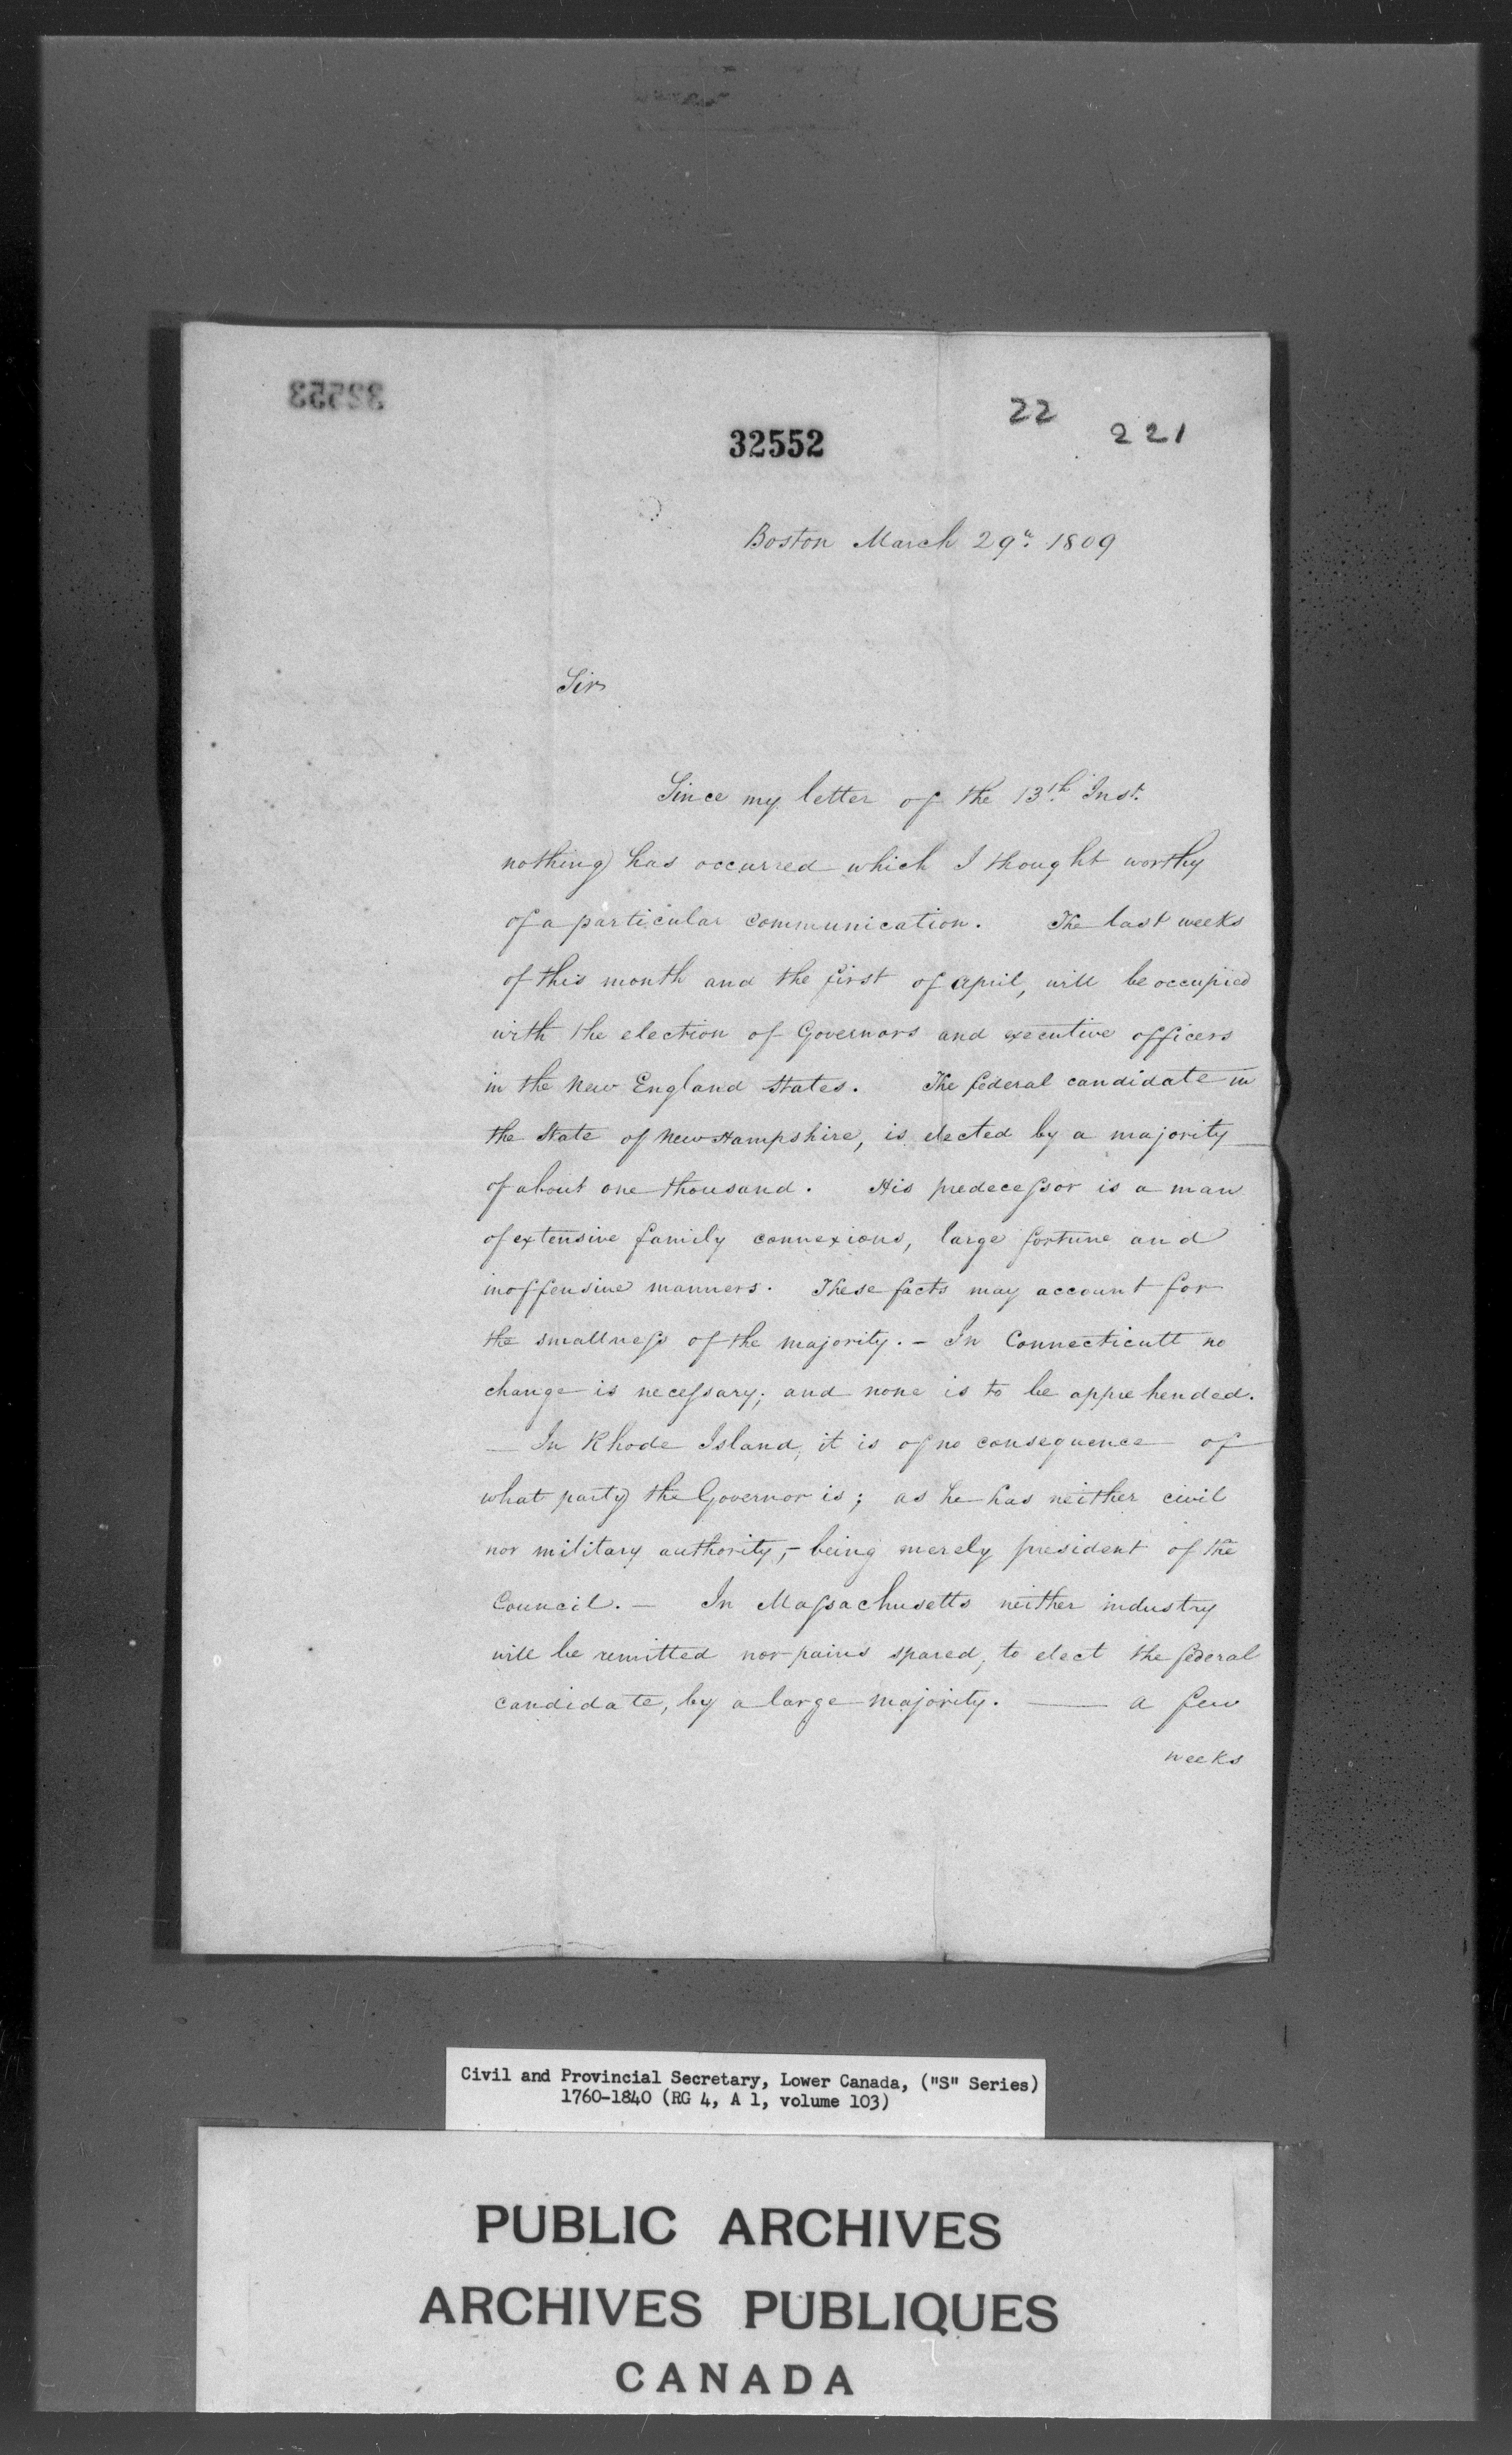 32553
32552
22
221
Boston March 29th 1809
Sir
Since my letter of the 13th Inst.
nothing has occurred which I thought worthy
of a particular communication. The last weeks
of this month and the first of april, will be occupied
with the election of Governors and executive officers
in the New England States. The federal candidate in
the State of New Hampshire, is elected by a majority
of about one thousand. His predecessor is a man
of extensive family connexions, large fortune and
inoffensive manners. These facts may account for
the smallness of the majority. - In Connecticutt no
change is necessary; and none is to be apprehended.
— In Rhode Island, it is of no consequence of
what party the Governor is; as he has neither civil
nor military authority, - being merely president of the
Council. — In Massachusetts neither industry
will be remitted nor pains spared, to elect the federal
candidate, by a large majority. — a few
weeks
Civil and Provincial Secretary, Lower Canada, ("S" Series)
1760-1840 (RG 4, A 1, volume 103)
PUBLIC ARCHIVES
ARCHIVES PUBLIQUES
CANADA